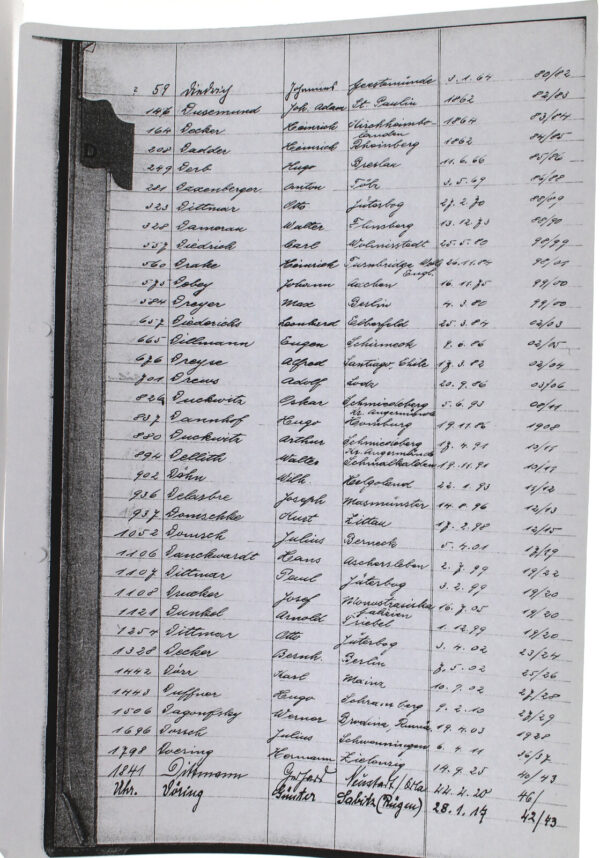 59 Diedrich Johannes Geestemünde 3.1.64 80/82
146 Dusemund Joh. Adam St. Paulin 1862 82/83
164 Decker Heinrich 1864 83/84
208 Dadder Heinrich Rheinberg 1862 84/85
249 Derb Hugo Breslau 11.6.66 85/86
281 Daxenberger Anton Tölz 3.5.69 86/88
323 Dittmar Otto Jüterbog 27.2.70 88/89
328 Damerau Walter Flensberg 13.12.73 89/90
557 Diedrich Carl Wolmirstedt 25.5.80
560 Drake Heinrich Turnbridge Wells Engl. 26.11.84
575 Dobey Johann Aachen 16.11.75 99/00
584 Dreyer Max Berlin 4.3.80 99/00
657 Diederichs Leonhard Elberfeld 25.3.84 02/03
665 Dillmann Eugen Schirmeck 8.6.86 02/05
676 Dreyse Alfred Santiago, Chile 17.3.82 02/04
701 Drews Adolf Lodz 20.9.86 03/06
826 Duckwitz Oskar Schmiedeberg Kr. Angermünde 5.6.93 08/11
837 Dannhof Hugo Homburg 19.11.86 1908
880 Duckwitz Arthur Schmiedeberg Kr. Angermünde 17.4.91 10/11
894 Delleith Walter Schmalkalden 19.11.91 10/11
902 Döhn Wilh. Helgoland 22.1.93 11/12
936 Delasbre Joseph Masmünster 14.8.96 12/13
937 Domschke Kurt Zittau 17.2.98 12/15
1052 Domsch Julius Berneck 5.4.01 17/19
1106 Danckwardt Hans Aschersleben 2.7.99 19/22
1107 Dittmar Paul Jüterbog 3.2.99 19/20
1108 Drucker Josef 16.7.05 19/20
1121 Dunkel Arnold Triebel 1.12.99 19/20
1254 Dittmar Otto Jüterbog 3.4.02 23/24
1328 Decker Bernh. Berlin 7.5.02 25/26
1442 Dörr Karl Mainz 10.9.02 27/28
1443 Duffner Hugo Schramberg 9.2.10 27/29
1506 Dagonfsky Werner Brodina, 19.4.03 1928
1696 Dorsch Julius Schwenningen 6.4.11 36/37
1798 Doering Hermann Zielenzig 14.9.25 40/43
1841 Dittmann Gerhard Neustadt/Orla 22.2.20 46/
Uhr. Döring Günter Sabitz (Rügen) 28.1.17 42/43